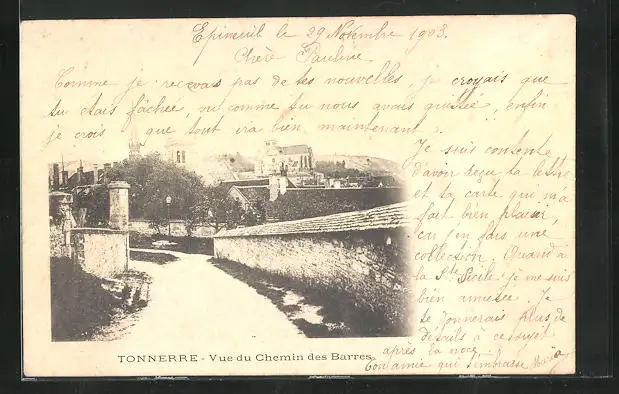 Epineuil le 29 Novembre 1903.
Chère Pauline
Comme je recevais pas de tes nouvelles, je croyais que
tu etais fâchée, vu comme tu nous avais quittée, enfin
je crois que tout ira bien maintenant.
Je suis contente
d'avoir reçu ta lettre
et ta carte qui m'a
fait bien plaisir,
car j'en fais une
collection. Quand à
la Ste Cécile je me suis
bien amusée. Je
te donnerais plus de
détails à ce sujet
après la noce.
Ton amie qui t'embrasse Maria
TONNERRE - Vue du Chemin des Barres